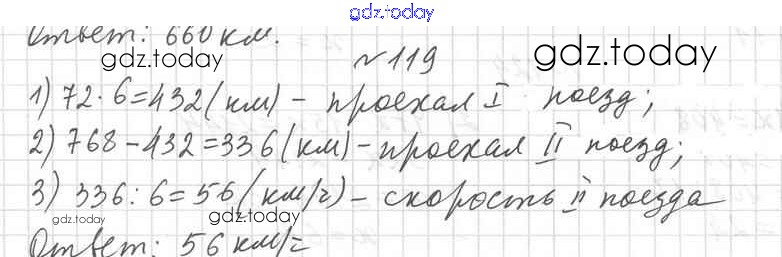 gdz.today
Ответ: 660 км.
gdz.today
№119
gdz.today
1) 72·6=432(км) – проехал I поезд;
2) 768-432=336(км)-проехал II поезд;
3) 336:6=56(км/ч)-скорость II поезда
gdz.today
gdz.today
Ответ: 56 км/ч